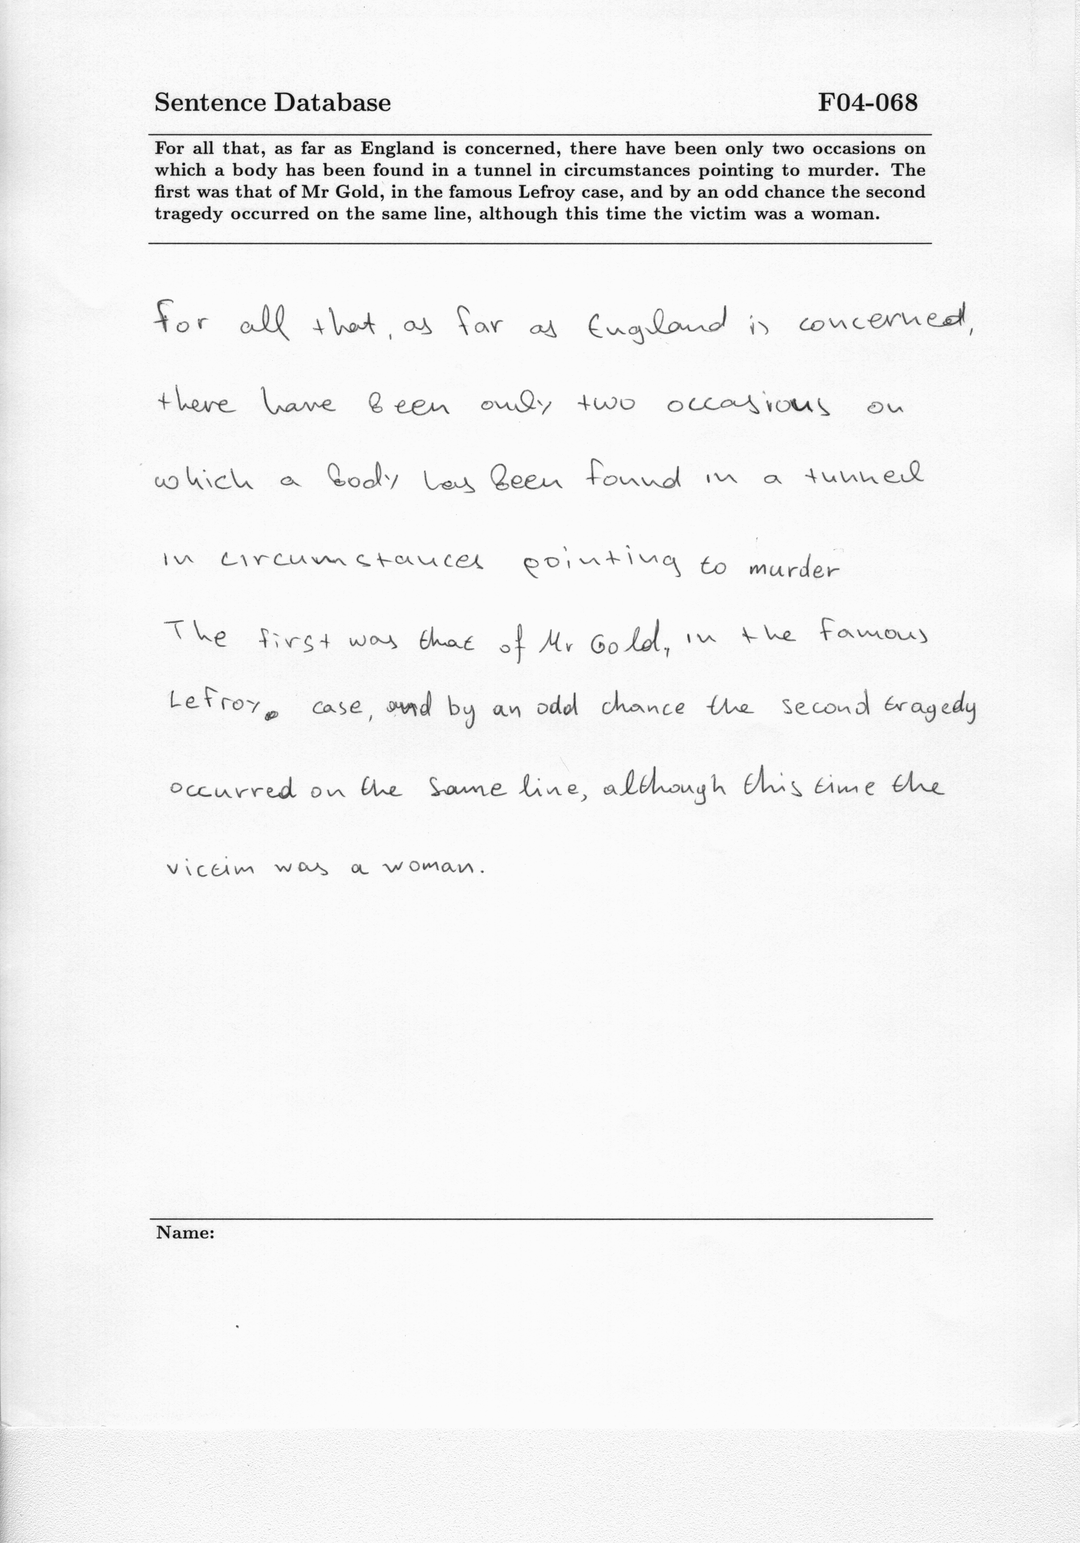 Sentence Database F04-068
For all that, as far as England is concerned, there have been only two occasions on
which a body has been found in a tunnel in circumstances pointing to murder. The
first was that of Mr Gold, in the famous Lefroy case, and by an odd chance the second
tragedy occurred on the same line, although this time the victim was a woman.
for all that, as far as England is concerned,
there have been only two occasions on
which a body has been found in a tunnel
in circumstances pointing to murder
The first was that of Mr Gold, in the famous
Lefroy, case, and by an odd chance the second tragedy
occurred on the same line, although this time the
victim was a woman.
Name: